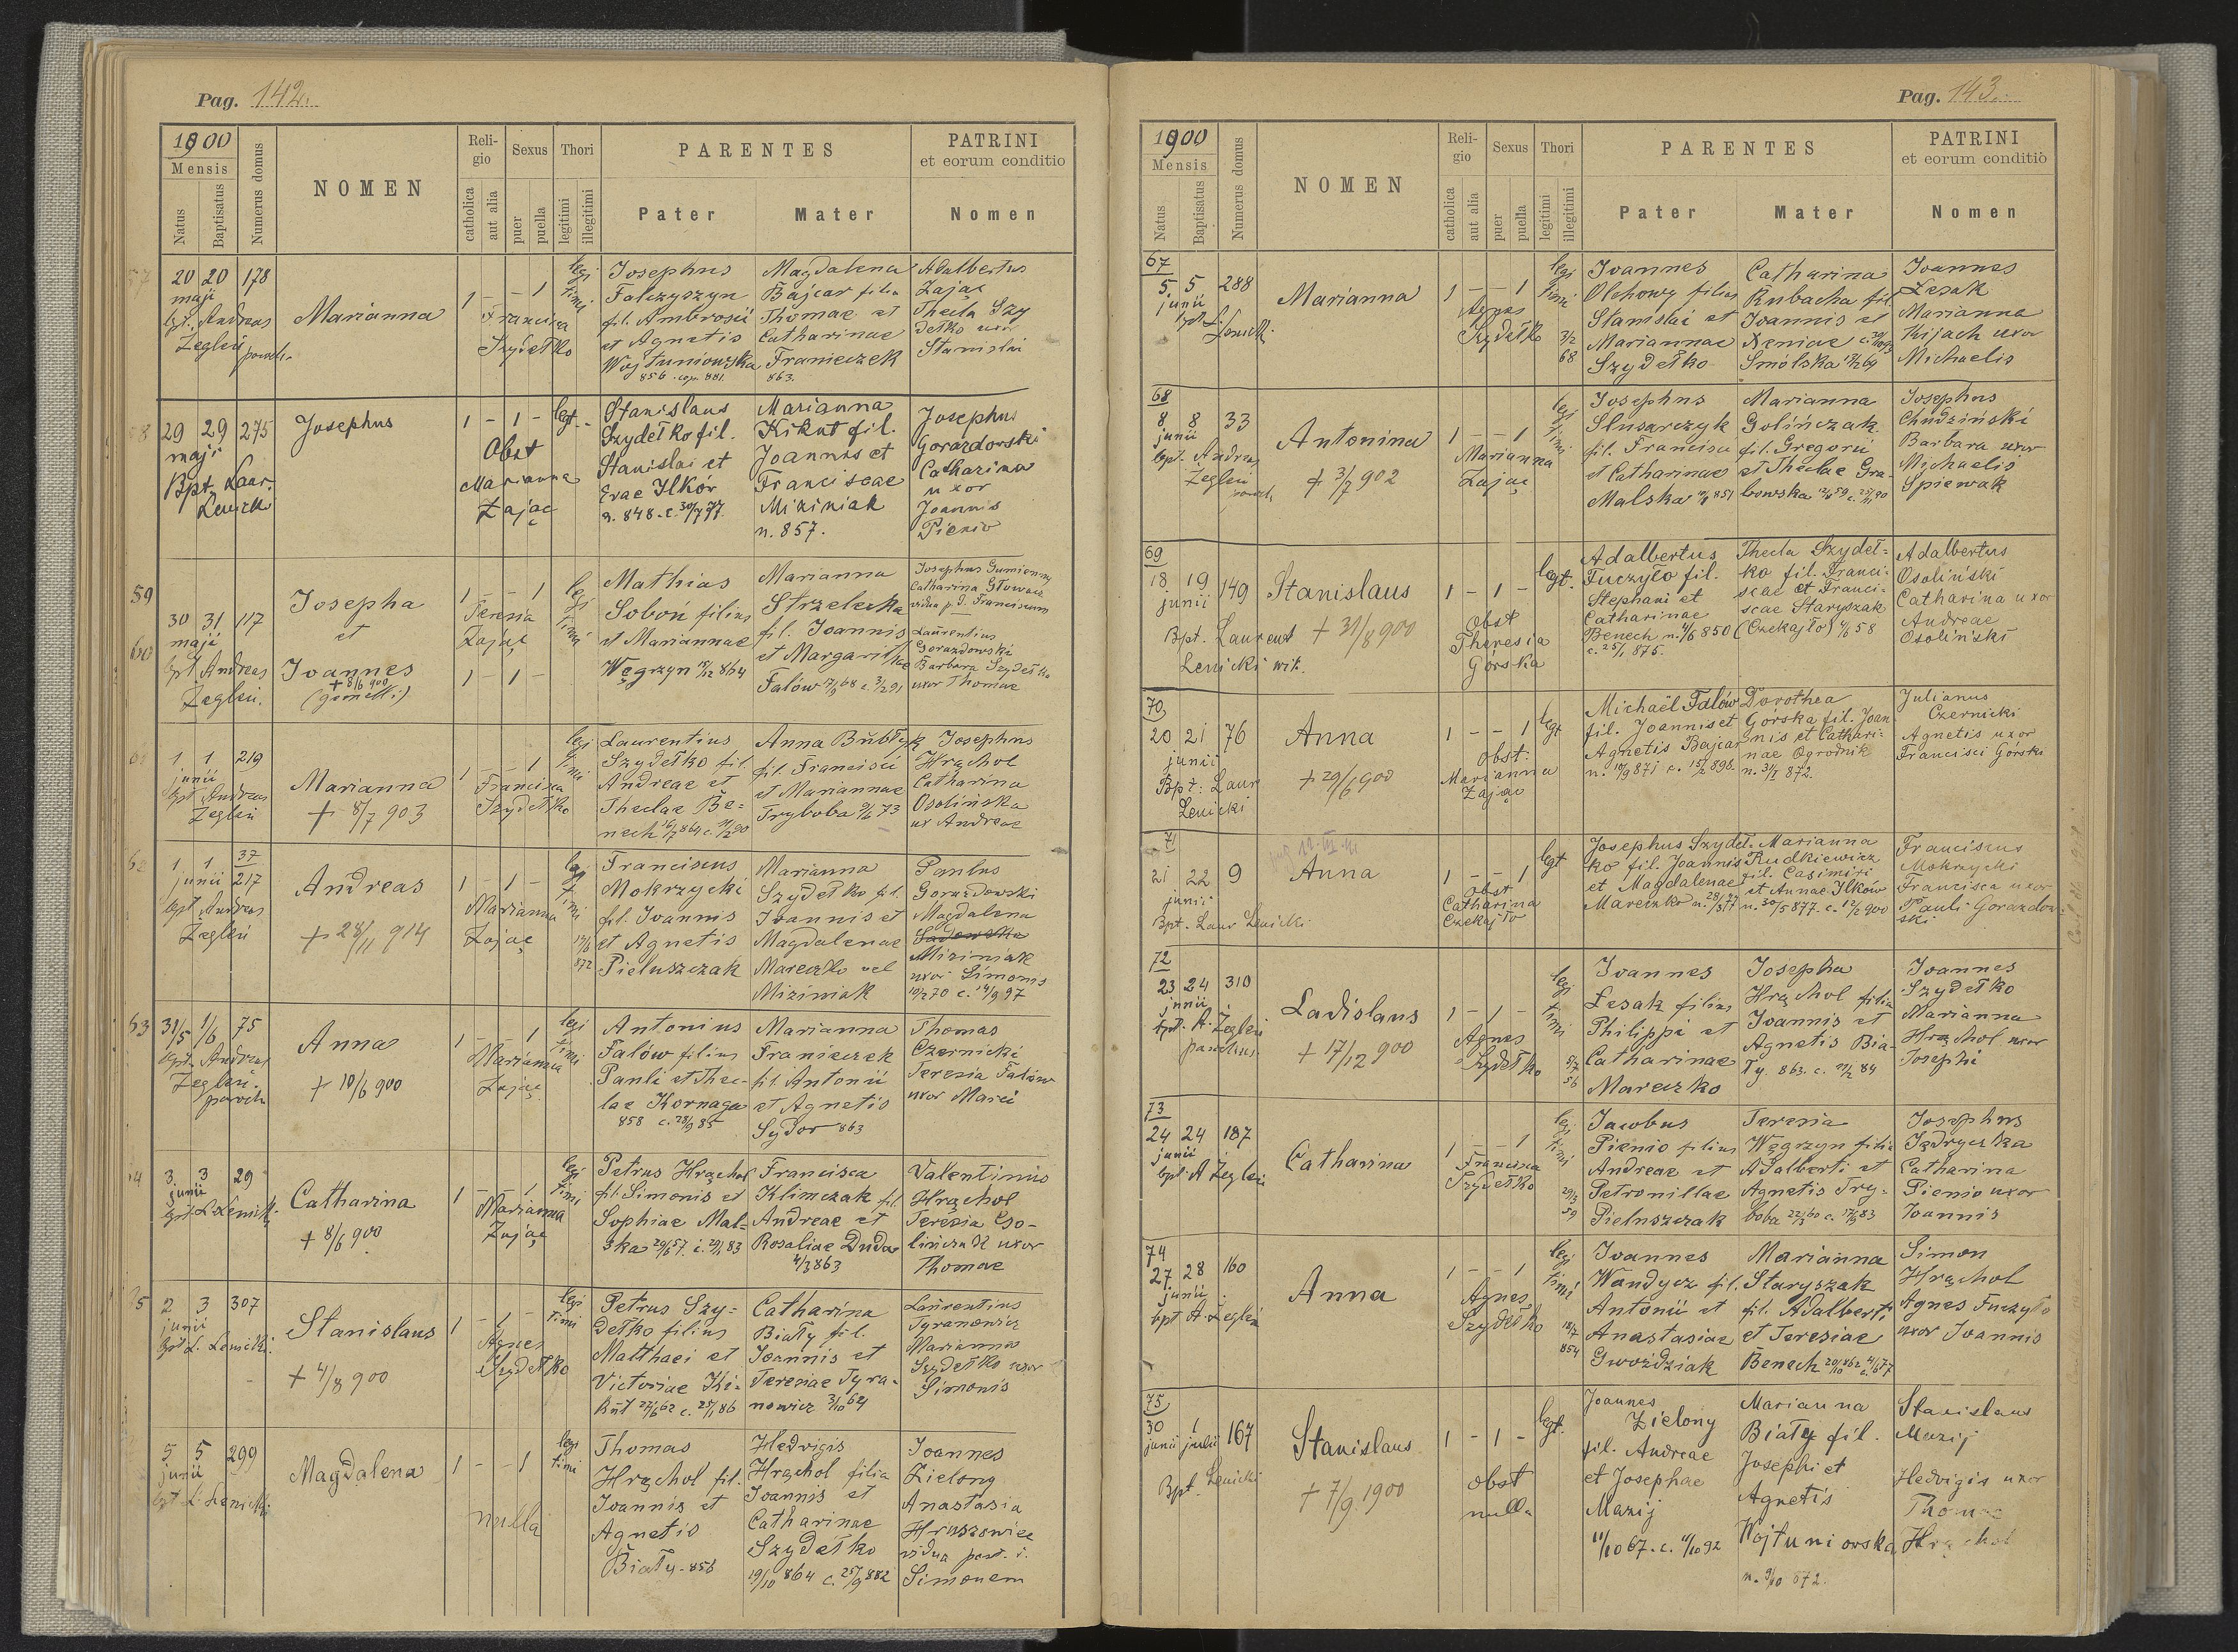 Pag. 142.
1900
Mensis
Natus
Baptisatus
Numerus domus
NOMEN
Religio
catholica
aut alia
Sexus
puer
puella
Thori
legitimi
illegitimi
PARENTES
Pater
Mater
PATRINI
et eorum conditio
Nomen
57
20 20 178
maji
bpt. Andreas
Zegleń paroch.
Marianna
1 - - 1
Francisca
Szydełko
legi
timi
Josephus
Falczyszyn
fil. Ambrosii
et Agnetis
Wojtuniowska
856 cop. 881.
Magdalena
Bajcar filia
Thomae et
Catharinae
Franieczek
863.
Adalbertus
Zając
Thecla Szy
dełko uxor
Stanislai
58
29 29 275
maji
Bpt. Laur.
Lewicki
Josephus
1 - 1 - legt.
Obst
Marianna
Zając
Stanislaus
Szydełko fil.
Stanislai et
Evae Ilków
n. 848. c. 30/7 77.
Marianna
Kikut fil.
Joannis et
Franciscae
Miziniak
n. 857.
Josephus
Gorazdowski
Catharina
uxor
Joannis
Pienio
59
60
30 31 117
maji
bpt Andreas
Zegleń.
Josepha
et
Joannes
+ 8/6 900
(gemelli)
1 - - 1
Teresia
Zając
1 - 1 -
legi
timi
Mathias
Soboń filius
et Mariannae
Węgrzyn 18/12 864
Marianna
Strzelecka
fil. Joannis
et Margarithae
Falów 7/9 68 c. 3/2 91
Josephus Gumienny
Catharina Głowacz
vidua p. d. Franciscum
Laurentius
Gorazdowski
Barbara Szydełko
uxor Thomae
61
1 1 219
junii
bpt. Andreas
Zegleń
Marianna
+ 8/7 903
1 - - 1
Francisca
Szydełko
legi
timi
Laurentius
Szydełko fil.
Andreae et
Theclae Be=
nech
Anna Bubłyk
fil. Francisci
et Mariannae
Tryboba 9/6 73
Josephus
Hrąchol
Catharina
Osolińska
ux Andreae
62
1 1 37
junii 217
bpt. Andreas
Zegleń
Andreas
+ 28/11 914
1 - 1 -
Marianna
Zając
legi
timi
872
Franciscus
Mokrzycki
fil. Joannis
et Agnetis
Pieluszczak
Marianna
Szydełko fil.
Joannis et
Magdalenae
Mareczko vel
Miziniak
Paulus
Gorazdowski
Magdalena
Miziniak
uxor Simonis
10/2 70 c. 14/9 97
63
31/5 1/6 75
bpt. Andreas
Zegleń.
paroch
Anna
+ 10/6 900
1 - - 1
Marianna
Zając
legi
timi
Antonius
Falów filius
Pauli et Thec-
lae Kornaga
858 c. 28/9 85
Marianna
Franieczek
fil. Antonii
et Agnetis
Sydor 863
Thomas
Czernicki
Teresia Falów
uxor Marci
64
3. 3 29
junii
bpt. L. Lewicki
Catharina
+ 8/6 900
1 - - 1
Marianna
Zając
legi
timi
Petrus Hrąchol
fil. Simonis et
Sophiae Mal=
ska 29/6 57. c. 29/1 83
Francisca
Klimczak fil.
Andreae et
Rosaliae Dudar
4/3 863
Valentinus
Hrąchol
Teresia Oso-
lińczuk uxor
Thomae
65
2 3 307
junii
bpt L. Lewicki.
Stanislaus
+ 4/8 900
1 - 1 -
Agnes
Szydełko
legi
timi
Petrus Szy=
dełko filius
Matthaei et
Victoriae Ki=
kut 27/6 62 c. 25/1 86
Catharina
Biały fil.
Joannis et
Teresiae Tyra-
nowicz 3/10 64
Laurentius
Tyranowicz
Marianna
Szydełko uxor
Simonis
5 5 299
junii
bpt L. Lewicki
Magdalena
1 - - 1
nulla
legi
timi
Thomas
Hrąchol fil.
Joannis et
Agnetis
Biały - 856
Hedvigis
Hrąchol filia
Joannis et
Catharinae
Szydełko
19/10 864 c. 25/9 882
Joannes
Zielony
Anastasia
Hruszowiec
vidua post. d.
Simonem
Pag. 143.
1900
Mensis
Natus
Baptisatus
Numerus domus
NOMEN
Religio
catholica
aut alia
Sexus
puer
puella
Thori
legitimi
illegitimi
PARENTES
Pater
Mater
PATRINI
et eorum conditio
Nomen
67
5 5 288
junii
bpt L
Lewicki
Marianna
1 - - 1
Agnes
Szydełko
legi
timi
3/2
68
Joannes
Olchowy filius
Stanislai et
Mariannae
Szydełko
Catharina
Kubacha fil
Joannis et
Xeniae
Smólska 12/2 69
Joannes
Lesak
Marianna
Kijach uxor
Michaelis
68
8 8 33
junii
bpt. Andreas
Zegleń
paroch
Antonina
+ 3/7 902
1 - - 1
Marianna
Zając
legi
timi
Josephus
Slusarczyk
fil. Francisci
et Catharinae
Malska
Marianna
Golińczak
fil. Gregorii
et Theclae Gra-
bowska
Josephus
Chudziński
Barbara uxor
Michaelis
Spiewak
69
18 19 149
junii
Bpt. Laurent
Lewicki wik.
Stanislaus
+ 31/8 900
1 - 1 -
obst
Theresia
Górska
legt.
Adalbertus
Fuczyło fil.
Stephani et
Catharinae
Benech n. 4/6 850
c. 25/1 875.
Thecla Szydeł=
ko fil. Franci-
scae et Franci-
scae Staryszak
(Czekajło) 4/6 58
Adalbertus
Osoliński
Catharina uxor
Andreae
Osoliński
70
20 21 76
junii
Bpt: Laur
Lewicki
Anna
+ 29/6 900
1 - - 1
obst:
Marianna
Zając
legt
Michaël Falów
fil. Joannis et
Agnetis Bajcar
n. 10/9 871 c. 15/2 898.
Dorothea
Górska fil. Joan
nis et Cathari-
nae Ogrodnik
n. 31/1 872.
Julianus
Czernicki
Agnetis uxor
Francisci Górska
71
21 22 9
junii
Bpt. Laur Lewicki
Anna
1 - - 1
obst
Catharina
Czekajło
legt
Josephus Szydeł-
ko fil. Joannis
et Magdalenae
Mareczko n. 28/3 77
Marianna
Rudkiewicz
fil. Casimiri
et Annae Ilków
n. 30/5 877. c. 12/2 900
Franciscus
Mokrzycki
Francisca uxor
Pauli Gorazdow
ski
72
23 24 310
junii
bpt. A. Zegleń
parochus
Ladislaus
+ 17/12 900
1 - 1 -
Agnes
Szydełko
legi
timi
5/7
56
Joannes
Lesak filius
Philippi et
Catharinae
Mareczko
Josepha
Hrąchol filia
Joannis et
Agnetis Bia-
ły. 863. c. 11/2 84
Joannes
Szydełko
Marianna
Hrąchol uxor
Josephi
73
24 24 187
junii
bpt. A Zegleń
Catharina
1 - - 1
Francisca
Szydełko
legi
timi
29/3
59
Jacobus
Pienio filius
Andreae et
Petronillae
Pieluszczak
Teresia
Węgrzyn filia
Adalberti et
Agnetis Try-
boba
Josephus
Jędryczka
Catharina
Pienio uxor
Joannis
74
27 28 160
junii
bpt A. Zegleń
Anna
1 - - 1
Agnes
Szydełko
legi
timi
18/7
854
Joannes
Wandycz fil.
Antonii et
Anastasiae
Gwoździak
Marianna
Staryszak
fil. Adalberti
et Teresiae
Benech
Simon
Hrąchol
Agnes Fuczyło
uxor Joannis
75
30 1 167
junii julii
Bpt. Lewicki
Stanislaus
+ 7/9 1900
1 - 1 -
obst
nulla
legt.
Joannes
Zielony
fil. Andreae
et Josephae
Mazij
11/10 67. c. 11/10 92
Marianna
Biały fil.
Josephi et
Agnetis
Wojtuniowska
n. 9/10 872.
Stanislaus
Mazij
Hedvigis uxor
Thomae
Hrąchol